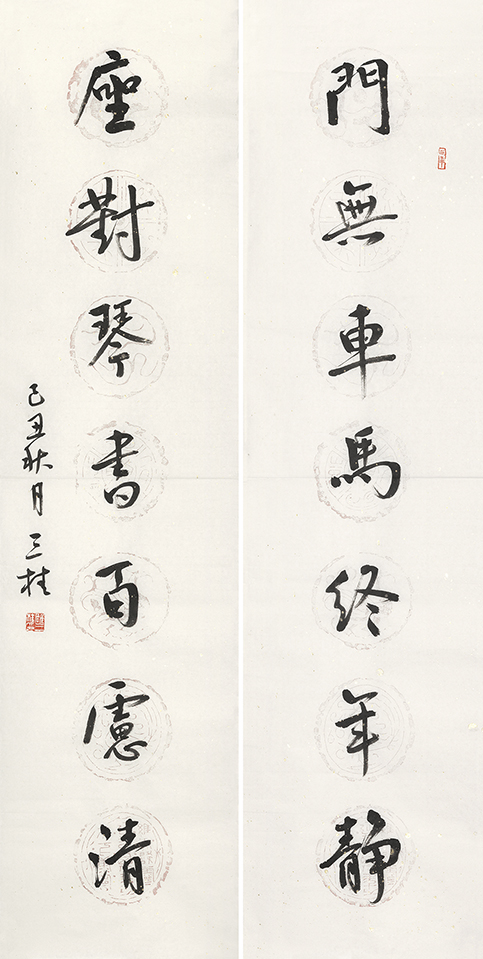 門無車馬終年静
座對琴書百慮清
己丑秋月三桂